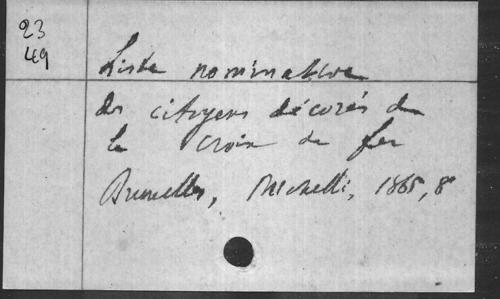 23
49
Liste nominative
des citoyens décorés de
la Croix de fer
Bruxelles, Michelli, 1865, 8°